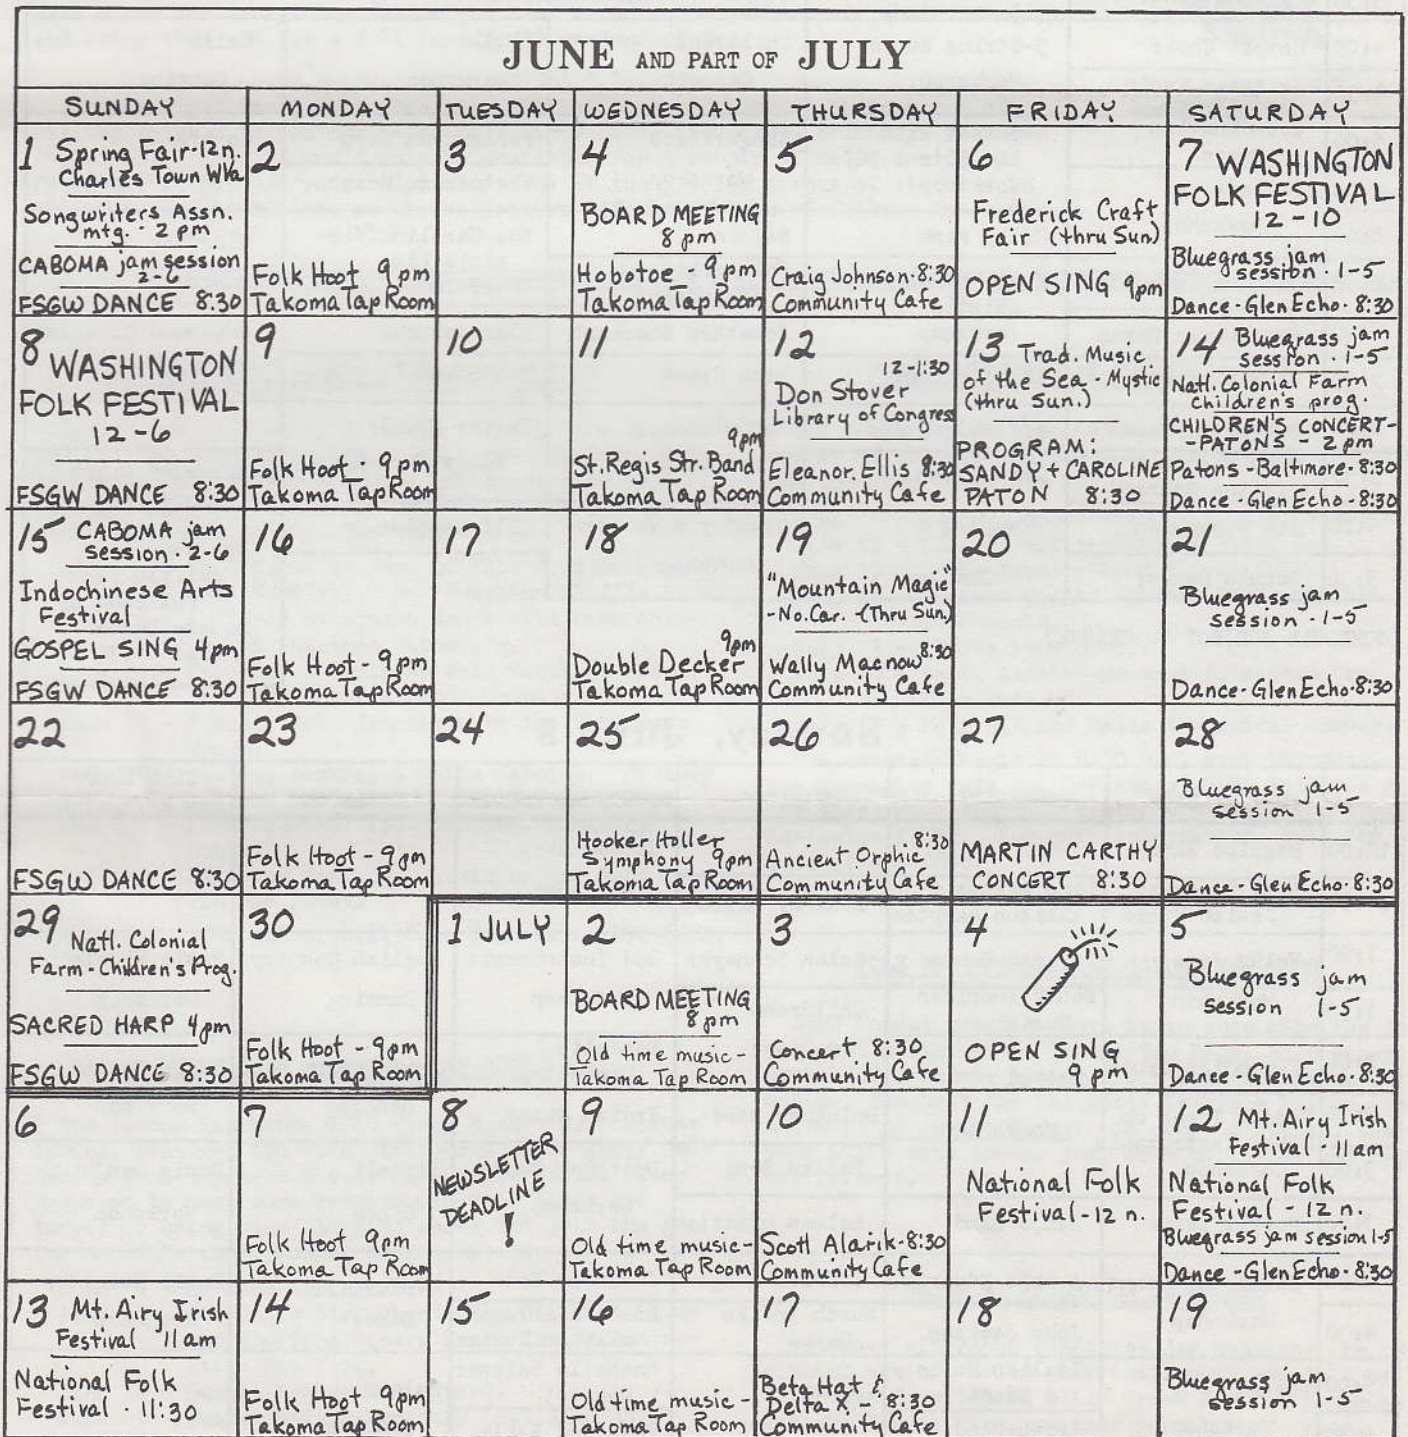 JUNE AND PART OF JULY
SUNDAY MONDAY TUESDAY WEDNESDAY THURSDAY FRIDAY SATURDAY
1 Spring Fair-12n.
Charles Town WVa
Songwriters Assn.
mtg. - 2pm
CABOMA jam session
2-6
FSGW DANCE 8:30
2
Folk Hoot 9pm
Takoma Tap Room
3
4
BOARD MEETING
8pm
Hobotoe - 9pm
Takoma Tap Room
5
Craig Johnson-8:30
Community Cafe
6
Frederick Craft
Fair (thru Sun)
OPEN SING 9pm
7 WASHINGTON
FOLK FESTIVAL
12-10
Bluegrass jam
session. 1-5
Dance-Glen Echo. 8:30
8 WASHINGTON
FOLK FESTIVAL
12-6
FSGW DANCE 8:30
9
Folk Hoot - 9pm
Takoma Tap Room
10
11
9pm
St. Regis Str. Band
Takoma Tap Room
12
12-1:30
Don Stover
Library of Congress
Eleanor Ellis 8:30
Community Cafe
13 Trad. Music
of the Sea - Mystic
(thru Sun.)
PROGRAM:
SANDY + CAROLINE
PATON 8:30
14 Bluegrass jam
session. 1-5
Natl. Colonial Farm
children's prog.
CHILDREN'S CONCERT-
-PATONS - 2pm
Patons-Baltimore-8:30
Dance-Glen Echo-8:30
15 CABOMA jam
session. 2-6
Indochinese Arts
Festival
GOSPEL SING 4pm
FSGW DANCE 8:30
16
Folk Hoot - 9pm
Takoma Tap Room
17
18
9pm
Double Decker
Takoma Tap Room
19
"Mountain Magic"
-No.Car. -(Thru Sun.)
Wally Macnow 8:30
Community Cafe
20
21
Bluegrass jam
session. 1-5
Dance-Glen Echo-8:30
22
FSGW DANCE 8:30
23
Folk Hoot - 9pm
Takoma Tap Room
24
25
Hooker Holler
Symphony 9pm
Takoma Tap Room
26
Ancient Orphic 8:30
Community Cafe
27
MARTIN CARTHY
CONCERT 8:30
28
Bluegrass jam
session 1-5
Dance-Glen Echo-8:30
29 Natl. Colonial
Farm-Children's Prog.
SACRED HARP 4pm
FSGW DANCE 8:30
30
Folk Hoot - 9pm
Takoma Tap Room
1 JULY
2
BOARD MEETING
8pm
Old time music-
Takoma Tap Room
3
Concert 8:30
Community Cafe
4
OPEN SING
9pm
5
Bluegrass jam
session 1-5
Dance-Glen Echo-8:30
6
7
Folk Hoot 9pm
Takoma Tap Room
8
NEWSLETTER
DEADLINE
!
9
Old time music-
Takoma Tap Room
10
Scott Alarik-8:30
Community Cafe
11
National Folk
Festival-12 n.
12 Mt. Airy Irish
Festival. 11am
National Folk
Festival - 12 n.
Bluegrass jam session 1-5
Dance-Glen Echo-8:30
13 Mt. Airy Irish
Festival 11am
National Folk
Festival. 11:30
14
Folk Hoot 9pm
Takoma Tap Room
15
16
Old time music-
Takoma Tap Room
17
Beta Hat &
Delta X - 8:30
Community Cafe
18
19
Bluegrass jam
session 1-5